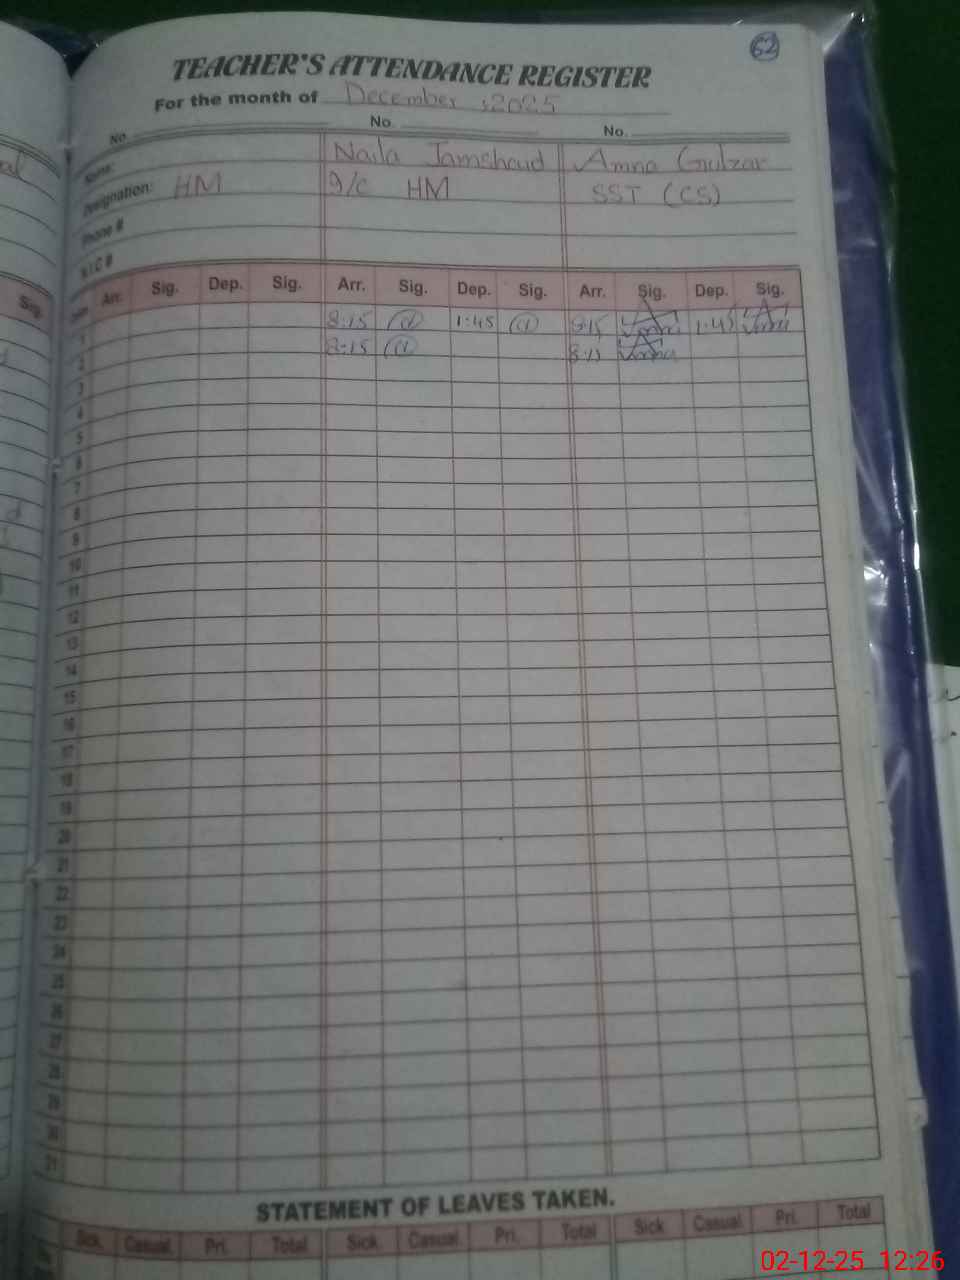 52
TEACHER'S ATTENDANCE REGISTER
For the month of December, 2025
No. No. No.
Name: Naila Jamshaid Amna Gulzar
Designation: HM I/C HM SST (CS)
Phone #
N.I.C #
Sig.
Date Arr. Sig. Dep. Sig. Arr. Sig. Dep. Sig. Arr. Sig. Dep. Sig.
1 8:15 1:45 8:15 1:45
2 8:15 8:15
3
4
5
6
7
8
9
10
11
12
13
14
15
16
17
18
19
20
21
22
23
24
25
26
27
28
29
30
31
STATEMENT OF LEAVES TAKEN.
Sick Casual Pri. Total Sick Casual Pri. Total Sick Casual Pri. Total
02-12-25 12:26